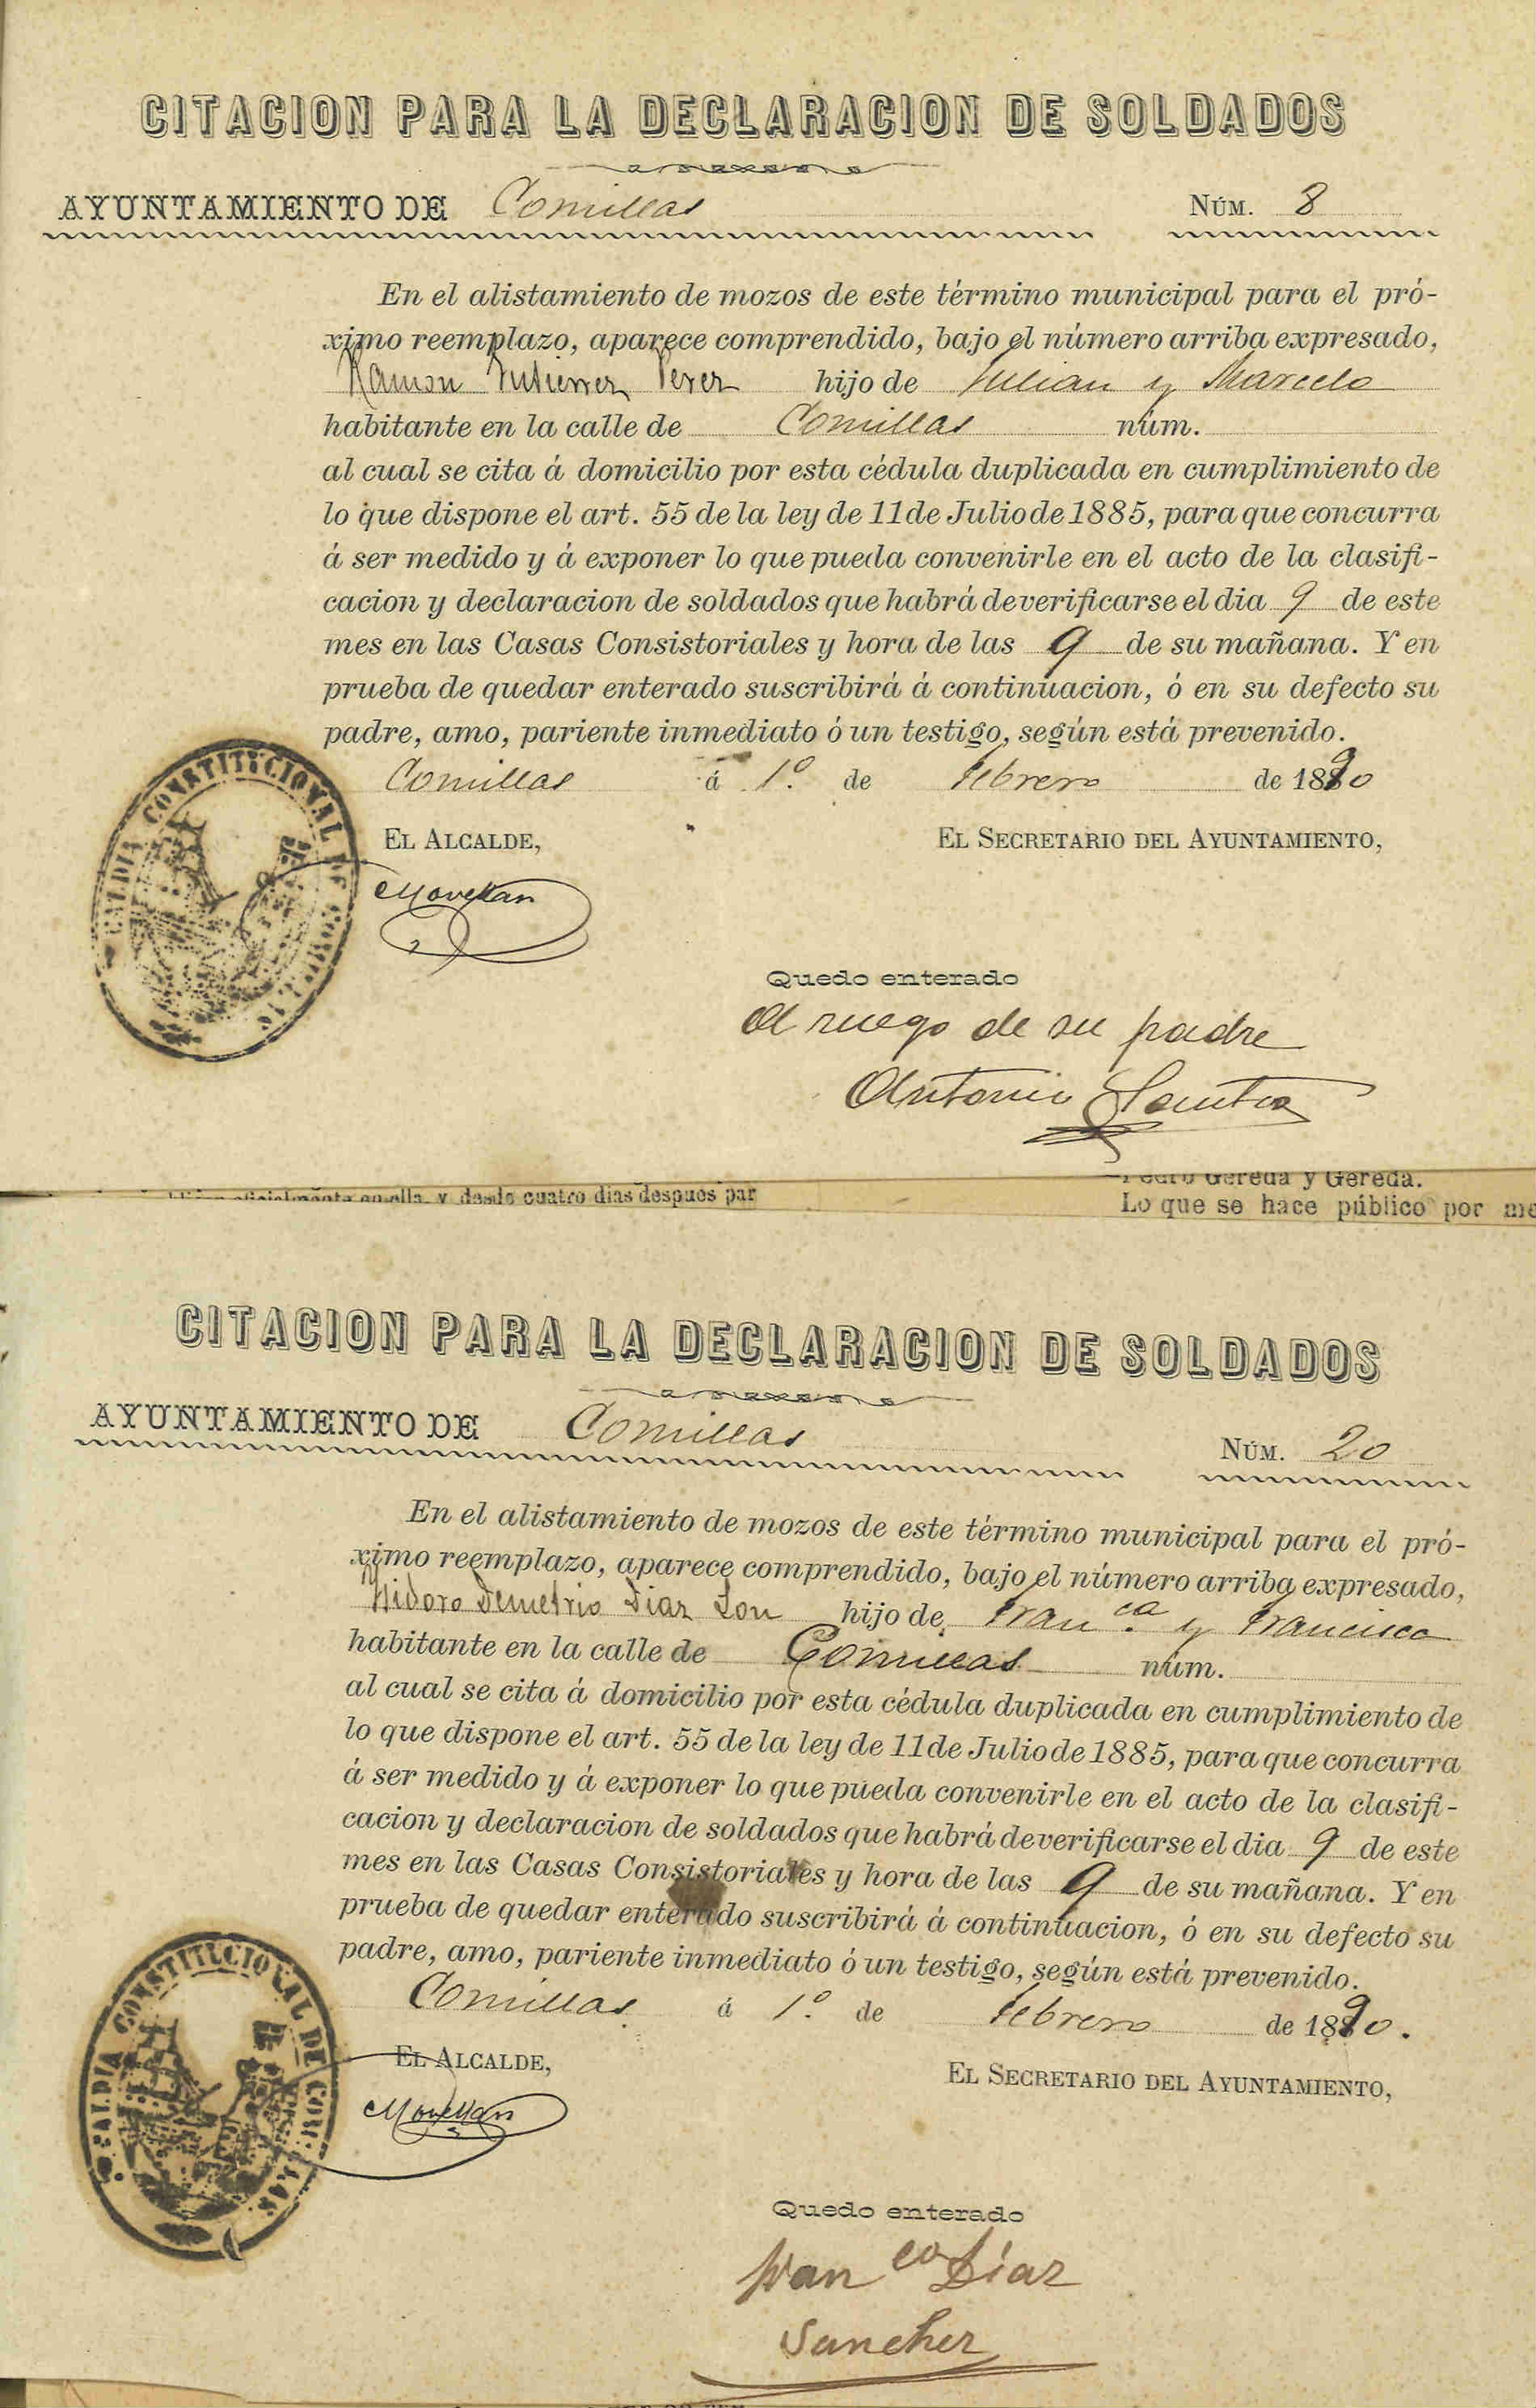 CITACION PARA LA DECLARACION DE SOLDADOS
AYUNTAMIENTO DE Comillas NÚM. 8
En el alistamiento de mozos de este término municipal para el pró-
ximo reemplazo, aparece comprendido, bajo el número arriba expresado,
Ramon Gutierrez Perez hijo de Julian y Marcela
habitante en la calle de Comillas núm.
al cual se cita á domicilio por esta cédula duplicada en cumplimiento de
lo que dispone el art. 55 de la ley de 11 de Julio de 1885, para que concurra
á ser medido y á exponer lo que pueda convenirle en el acto de la clasifi-
cacion y declaracion de soldados que habrá de verificarse el dia 9 de este
mes en las Casas Consistoriales y hora de las 9 de su mañana. Y en
prueba de quedar enterado suscribirá á continuacion, ó en su defecto su
padre, amo, pariente inmediato ó un testigo, según está prevenido.
Comillas á 1º. de Febrero de 1890
EL ALCALDE, EL SECRETARIO DEL AYUNTAMIENTO,
ALCALDIA CONSTITUCIONAL DE COMILLAS
Movellan
Quedo enterado
A ruego de su padre
Antonio
oficialmente en ella, y desde cuatro dias despues par
Pedro Gereda y Gereda.
Lo que se hace público por me
CITACION PARA LA DECLARACION DE SOLDADOS
AYUNTAMIENTO DE Comillas NÚM. 20
En el alistamiento de mozos de este término municipal para el pró-
ximo reemplazo, aparece comprendido, bajo el número arriba expresado,
Isidoro Demetrio Diaz Son hijo de Fran.ca y Francisca
habitante en la calle de Comillas núm.
al cual se cita á domicilio por esta cédula duplicada en cumplimiento de
lo que dispone el art. 55 de la ley de 11 de Julio de 1885, para que concurra
á ser medido y á exponer lo que pueda convenirle en el acto de la clasifi-
cacion y declaracion de soldados que habrá de verificarse el dia 9 de este
mes en las Casas Consistoriales y hora de las 9 de su mañana. Y en
prueba de quedar enterado suscribirá á continuacion, ó en su defecto su
padre, amo, pariente inmediato ó un testigo, según está prevenido.
Comillas á 1º. de Febrero de 1890.
EL ALCALDE, EL SECRETARIO DEL AYUNTAMIENTO,
ALCALDIA CONSTITUCIONAL DE COMILLAS
Movellan
Quedo enterado
Fran co Díaz
Sanchez